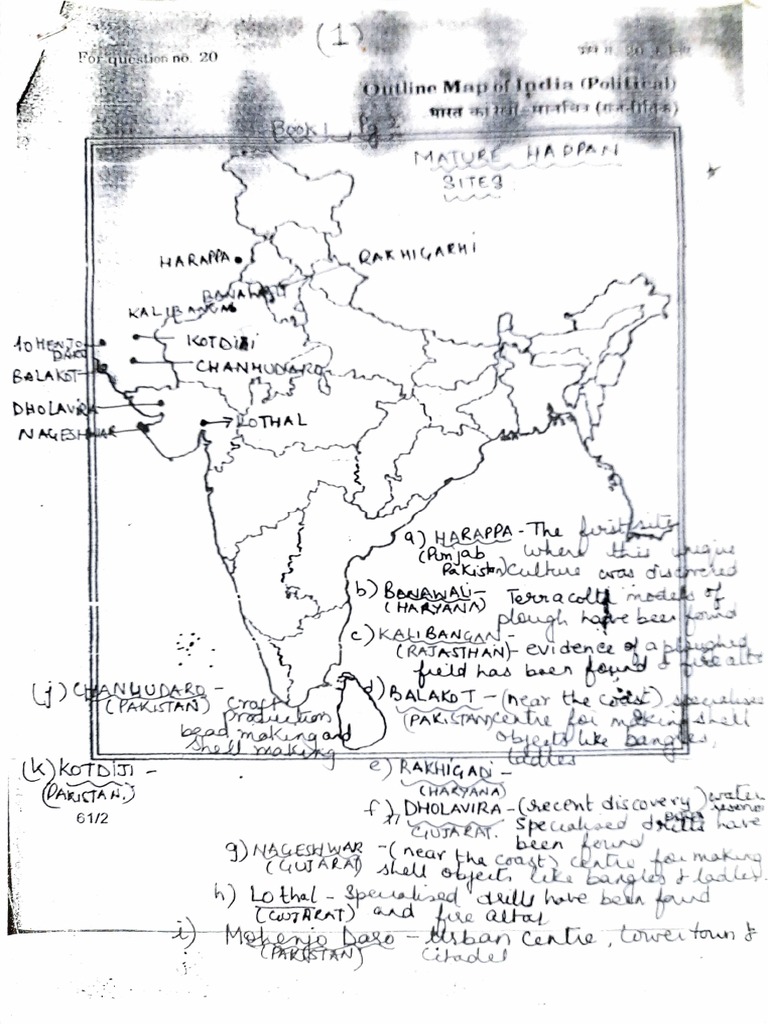 (1)
For question no. 20
Outline Map of India (Political)
भारत का रेखा-मानचित्र (राजनीतिक)
Book 1, Pg 2
MATURE HADPAN
SITES
HARAPPA
RAKHIGARHI
BANAWALI
KALIBANGAN
KOTDIJI
CHANHUDARO
BALAKOT
DHOLAVIRA
LOTHAL
NAGESHWAR
a) HARAPPA - The first site
(Punjab where this unique
Pakistan) culture was discovered
b) BANAWALI - Terracotta models of
(HARYANA) plough have been found
c) KALIBANGAN -
(RAJASTHAN) - evidence of a ploughed
field has been found & fire alta
(j) CHANHUDARO - craft
(PAKISTAN) production
bead making and
shell making
d) BALAKOT - (near the coast) specialised
(PAKISTAN) centre for making shell
objects like bangles,
ladles
(k) KOTDIJI -
(PAKISTAN.)
61/2
e) RAKHIGADI -
(HARYANA)
f) DHOLAVIRA - (recent discovery) water
GUJARAT. Specialised drills have
been found
g) NAGESHWAR - (near the coast) centre for making
(GUJARAT) shell objects like bangles & ladles.
h) Lothal - Specialised drills have been found
(GUJARAT) and fire altar
i) Mohenjo Daro - Urban centre, lower town &
(PAKISTAN) citadel